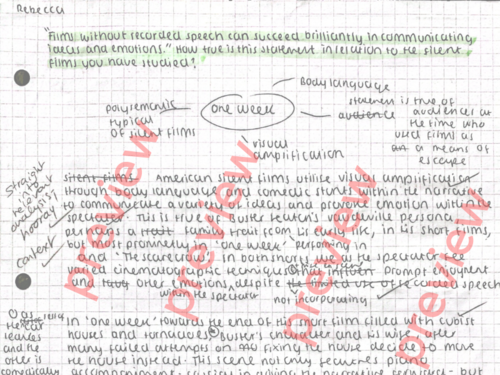 Rebecca
"Films without recorded speech can succeed brilliantly in communicating
ideas and emotions." How true is this statement in relation to the silent
films you have studied?
Body language
polysemic
typical
of silent films
one week
statement is true of
audience audiences at
the time who
used films as
a means of
escape
visual
amplification
Straight
into
relevant
analysis
hooray
context
silent films American silent films utilise visual amplification
though body language and comedic stunts within the narrative
to communicate a variety of ideas and provoke emotion within the
spectator. This is true of Buster Keaton's vaudeville persona,
perhaps a trait family trait from his early life, in his short films,
but most promptly in 'one week' performing in
and 'The scarecrow'. In both shorts, we the spectator see
varied cinematographic techniques prompt enjoyment
and other emotions despite recorded speech
within the spectator not incorporating
In 'one week' towards the end of this short film filled with cubist
houses and tornadoes, Buster's character and his wife, after
many failed attempts on fixing the house decide to move
the house instead. This scene not only features piano
leaves
and the
other is
comedically
preview
preview
preview
preview